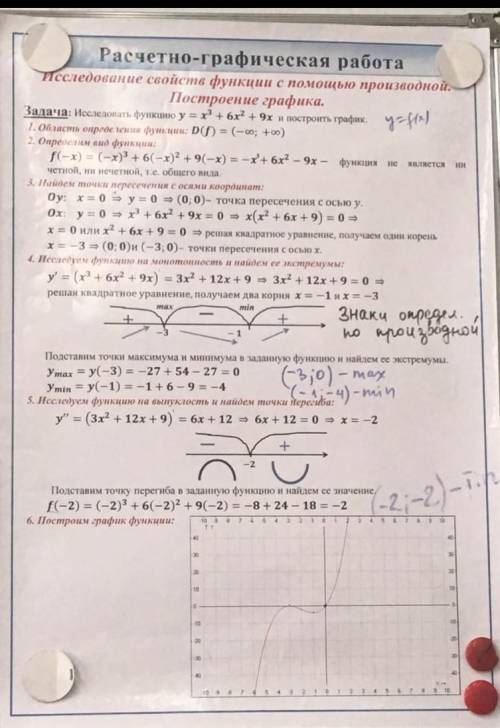 Расчетно-графическая работа
Исследование свойств функции с помощью производной.
Построение графика.
Задача: Исследовать функцию y = x³ + 6x² + 9x и построить график. y=f(x)
1. Область определения функции: D(f) = (−∞; +∞)
2. Определим вид функции:
f(−x) = (−x)³ + 6(−x)² + 9(−x) = −x³ + 6x² − 9x − функция не является ни
четной, ни нечетной, т.е. общего вида.
3. Найдем точки пересечения с осями координат:
Oy: x = 0 ⇒ y = 0 ⇒ (0; 0)− точка пересечения с осью y.
Ox: y = 0 ⇒ x³ + 6x² + 9x = 0 ⇒ x(x² + 6x + 9) = 0 ⇒
x = 0 или x² + 6x + 9 = 0 ⇒ решая квадратное уравнение, получаем один корень
x = −3 ⇒ (0; 0) и (−3; 0)− точки пересечения с осью x.
4. Исследуем функцию на монотонность и найдем ее экстремумы:
y′ = (x³ + 6x² + 9x)′ = 3x² + 12x + 9 ⇒ 3x² + 12x + 9 = 0 ⇒
решая квадратное уравнение, получаем два корня x = −1 и x = −3
max min
+ − +
−3 −1
Знаки определ.
по производной
Подставим точки максимума и минимума в заданную функцию и найдем ее экстремумы.
ymax = y(−3) = −27 + 54 − 27 = 0 (-3;0) - max
ymin = y(−1) = −1 + 6 − 9 = −4 (-1;-4) - min
5. Исследуем функцию на выпуклость и найдем точки перегиба:
y″ = (3x² + 12x + 9)′ = 6x + 12 ⇒ 6x + 12 = 0 ⇒ x = −2
− +
−2
Подставим точку перегиба в заданную функцию и найдем ее значение.
f(−2) = (−2)³ + 6(−2)² + 9(−2) = −8 + 24 − 18 = −2 (-2;-2) - т.п
6. Построим график функции: